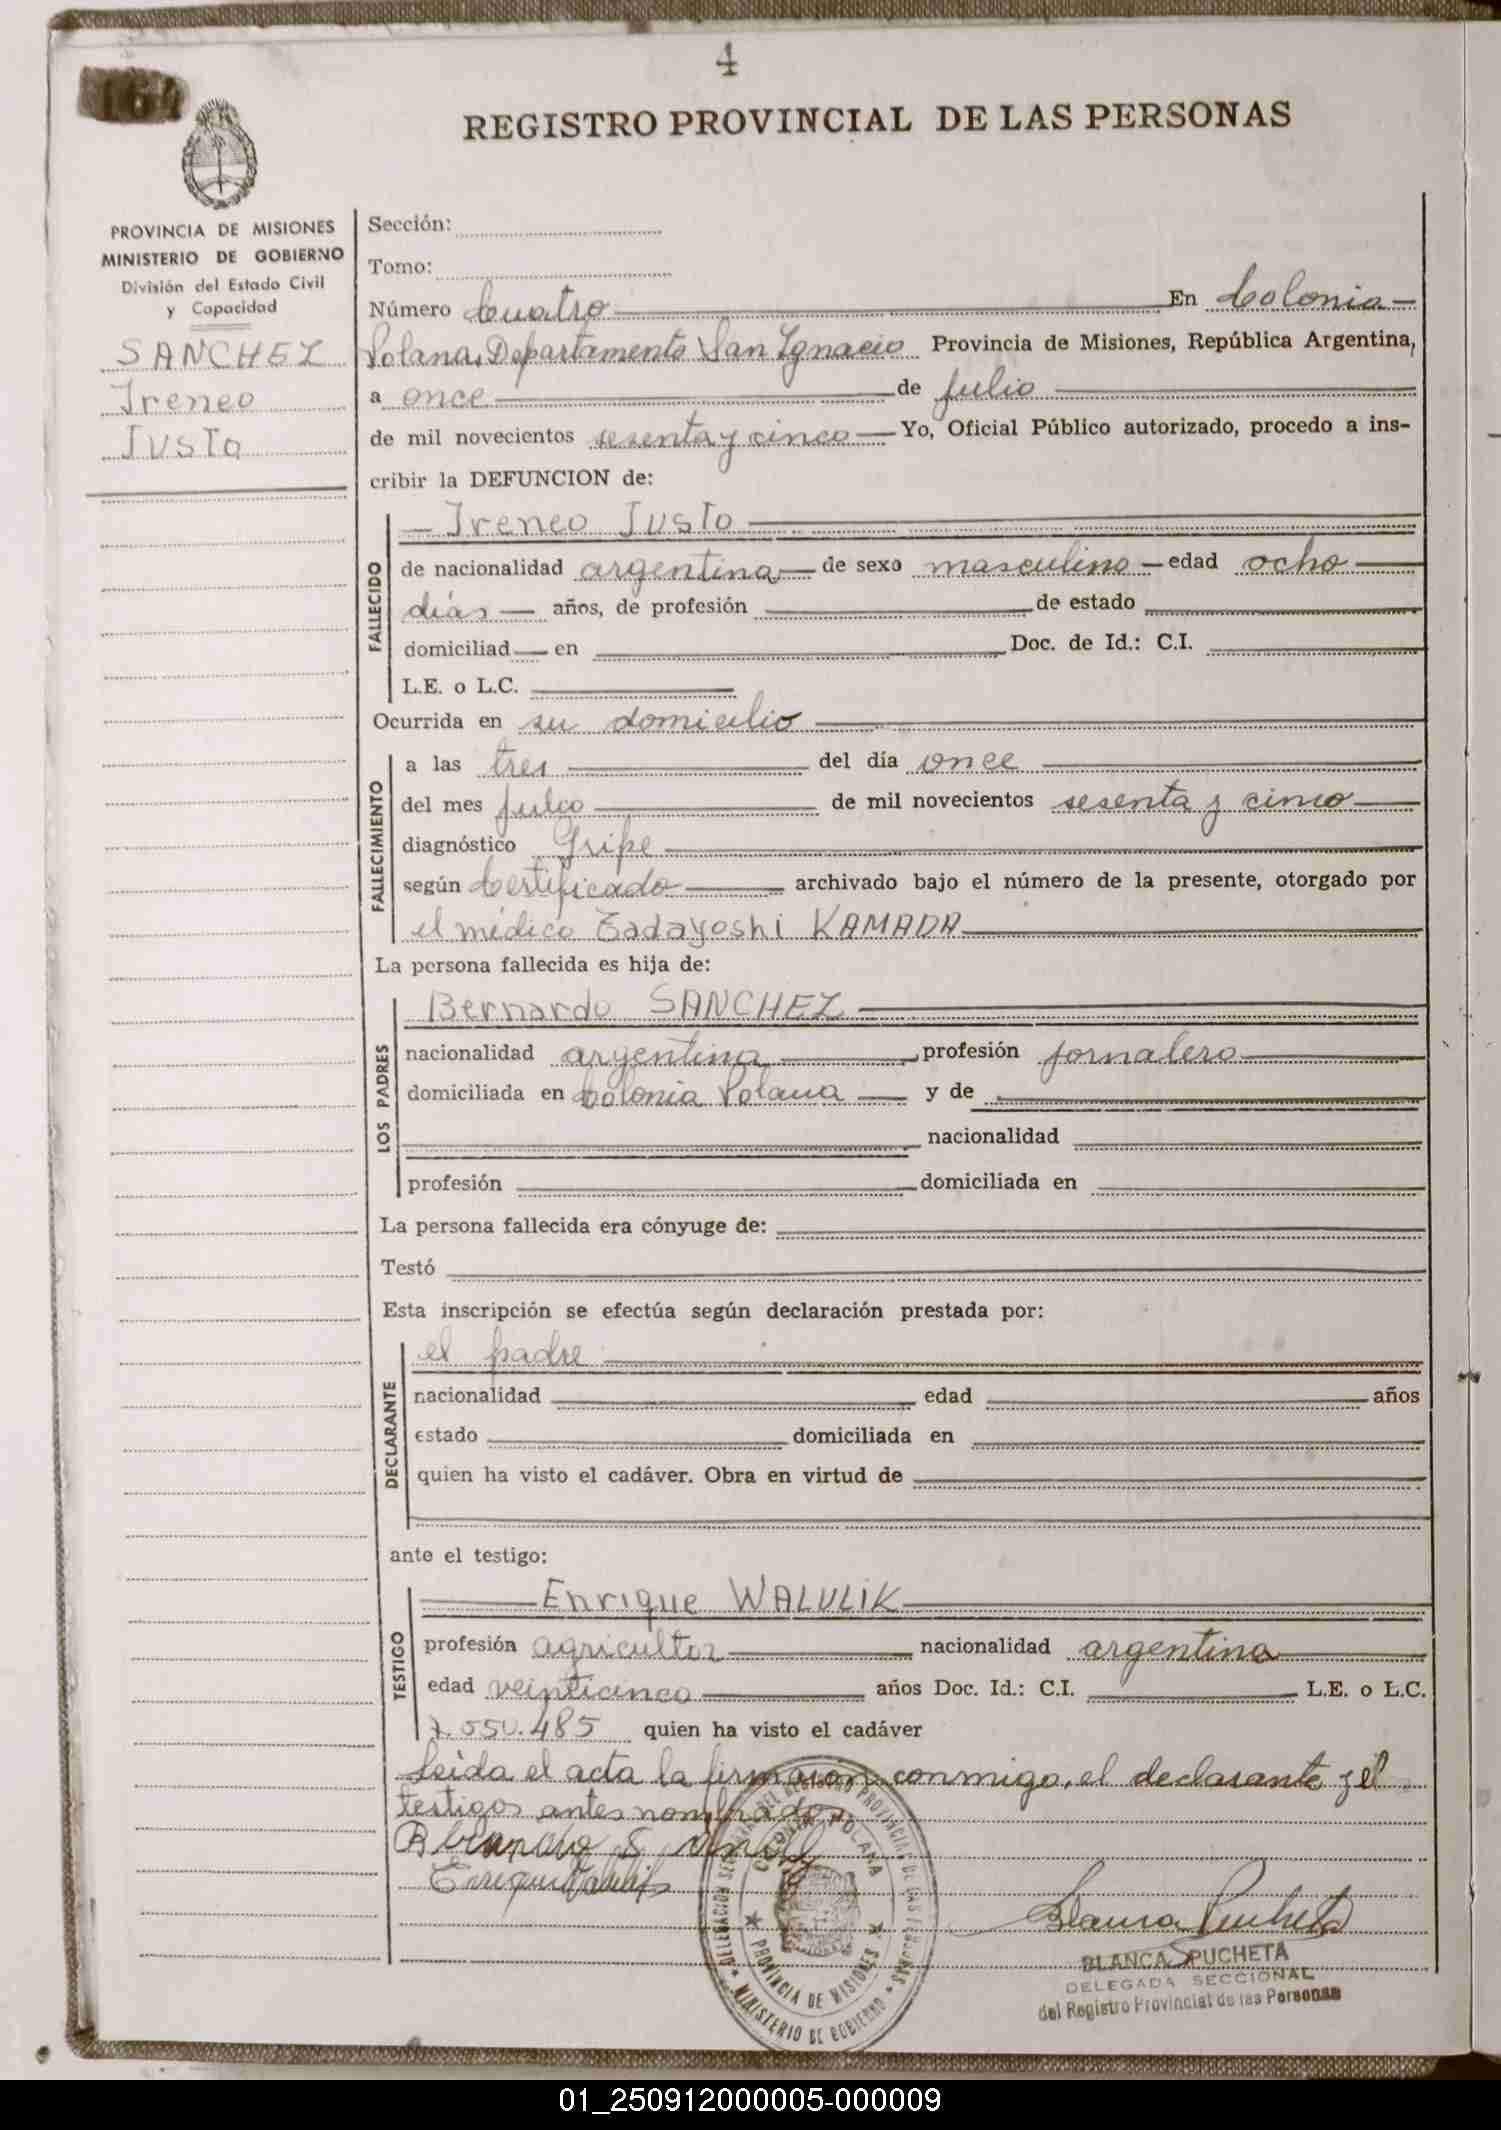 4
164
REGISTRO PROVINCIAL DE LAS PERSONAS
PROVINCIA DE MISIONES
MINISTERIO DE GOBIERNO
División del Estado Civil
y Capacidad
SANCHEZ
Ireneo
Justo
Sección:
Tomo:
Número Cuatro En Colonia
Polana, Departamento San Ignacio Provincia de Misiones, República Argentina,
a once de julio
de mil novecientos sesenta y cinco Yo, Oficial Público autorizado, procedo a ins-
cribir la DEFUNCION de:
FALLECIDO
Ireneo Justo
de nacionalidad argentina de sexo masculino edad ocho
días años, de profesión de estado
domiciliad en Doc. de Id.: C.I.
L.E. o L.C.
Ocurrida en su domicilio
FALLECIMIENTO
a las tres del día once
del mes julio de mil novecientos sesenta y cinco
diagnóstico Gripe
según Certificado archivado bajo el número de la presente, otorgado por
el médico Tadayoshi KAMADA
La persona fallecida es hija de:
LOS PADRES
Bernardo SANCHEZ
nacionalidad argentina profesión jornalero
domiciliada en Colonia Polana y de
nacionalidad
profesión domiciliada en
La persona fallecida era cónyuge de:
Testó
Esta inscripción se efectúa según declaración prestada por:
DECLARANTE
el padre
nacionalidad edad años
estado domiciliada en
quien ha visto el cadáver. Obra en virtud de
ante el testigo:
TESTIGO
Enrique WALULIK
profesión agricultor nacionalidad argentina
edad veinticinco años Doc. Id.: C.I. L.E. o L.C.
7.550.485 quien ha visto el cadáver
Leída el acta la firmaron conmigo, el declarante y el
testigos antes nombrados
Enrique Walulik
Blanca Pucheta
BLANCA S PUCHETA
DELEGADA SECCIONAL
del Registro Provincial de las Personas
DELEGACION SECCIONAL DEL REGISTRO PROVINCIAL DE LAS PERSONAS
COLONIA POLANA
PROVINCIA DE MISIONES
MINISTERIO DE GOBIERNO
01_250912000005-000009